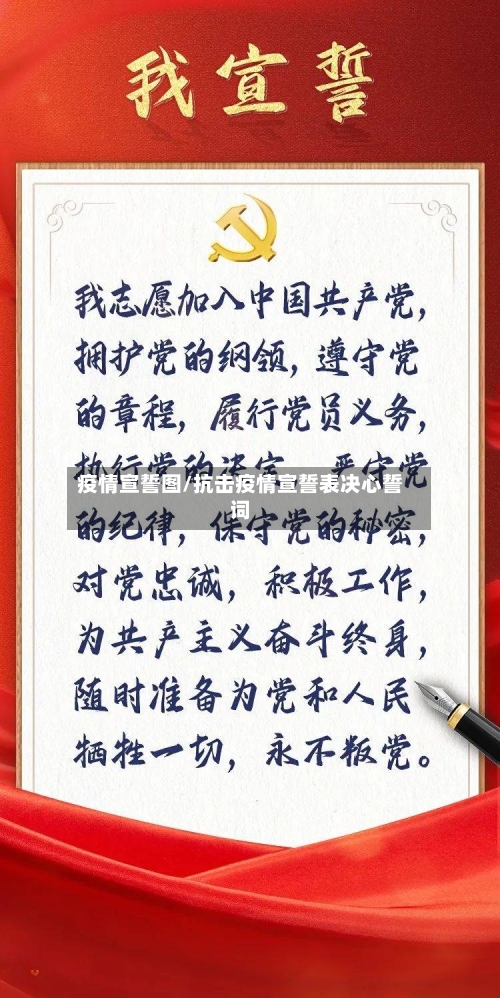 我宣誓
我志愿加入中国共产党,
拥护党的纲领, 遵守党
的章程, 履行党员义务,
执行党的决定, 严守党
疫情宣誓图/抗击疫情宣誓表决心誓
词
的纪律, 保守党的秘密,
对党忠诚, 积极工作,
为共产主义奋斗终身,
随时准备为党和人民
牺牲一切, 永不叛党。